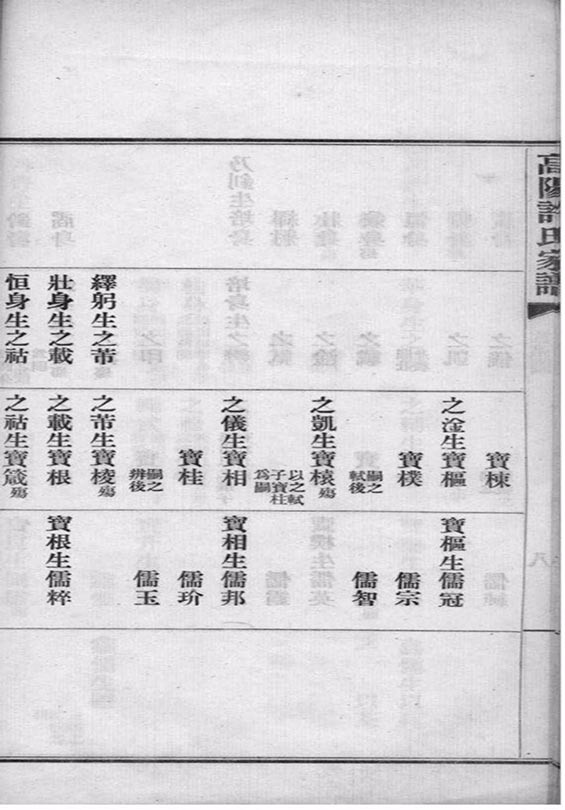 高陽許氏家譜
繹躬生之芾
壯身生之載
恒身生之祜
寶棟
之淦生寶樞
寶樸
嗣之
軾後
之凱生寶榱殤
以之軾
子寶柱
為嗣
之儀生寶相
寶桂
嗣之
辨後
之芾生寶棱殤
之載生寶根
之祜生寶箴殤
寶樞生儒冠
儒宗
儒智
寶相生儒邦
儒玠
儒玉
寶根生儒粹